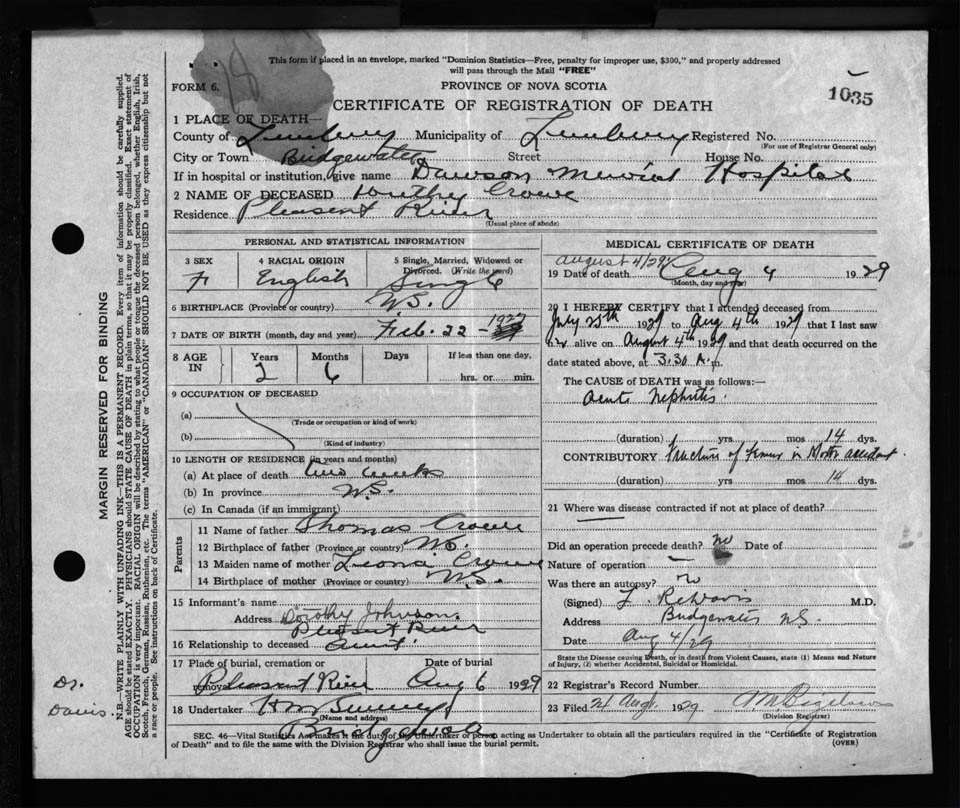 This form if placed in an envelope, marked "Dominion Statistics—Free, penalty for improper use, $300," and properly addressed
will pass through the Mail "FREE"
FORM 6.
PROVINCE OF NOVA SCOTIA
1035
CERTIFICATE OF REGISTRATION OF DEATH
1 PLACE OF DEATH—
County of Lunenburg Municipality of Lunenburg Registered No.
(For use of Registrar General only)
City or Town Bridgewater Street House No.
If in hospital or institution, give name Dawson Memorial Hospital
2 NAME OF DECEASED Crowe
Residence Pleasent River
(Usual place of abode)
PERSONAL AND STATISTICAL INFORMATION
3 SEX F
4 RACIAL ORIGIN English
5 Single, Married, Widowed or Divorced. (Write the word) Single
6 BIRTHPLACE (Province or country) N.S.
7 DATE OF BIRTH (month, day and year) Feb. 22 - 1927
8 AGE IN Years 2 Months 6 Days If less than one day, hrs. or min.
9 OCCUPATION OF DECEASED
(a)
(Trade or occupation or kind of work)
(b)
(Kind of industry)
10 LENGTH OF RESIDENCE (in years and months)
(a) At place of death two weeks
(b) In province N.S.
(c) In Canada (if an immigrant)
Parents
11 Name of father Thomas Crowe
12 Birthplace of father (Province or country) N.S.
13 Maiden name of mother Leona Crowe
14 Birthplace of mother (Province or country) N.S.
15 Informant's name Dorothy Johnson
Address Pleasant River
16 Relationship to deceased Aunt
17 Place of burial, cremation or removal Pleasant River Date of burial Aug 6 1929
18 Undertaker
(Name and address)
Bridgewater
MEDICAL CERTIFICATE OF DEATH
August 4/29
19 Date of death Aug 4 1929
(Month, day and year)
20 I HEREBY CERTIFY that I attended deceased from
July 25th 1929 to Aug 4th 1929 that I last saw
her alive on August 4th 1929 and that death occurred on the
date stated above, at 3.30 A.m.
The CAUSE of DEATH was as follows:—
Acute Nephritis
(duration) yrs mos 14 dys.
CONTRIBUTORY Fracture of Femur in Motor accident
(duration) yrs. mos 14 dys.
21 Where was disease contracted if not at place of death?
Did an operation precede death? No Date of
Nature of operation —
Was there an autopsy? no
(Signed) Davis M.D.
Address Bridgewater N.S.
Date Aug 4/29
State the Disease causing Death, or in death from Violent Causes, state (1) Means and Nature of Injury, (2) whether Accidental, Suicidal or Homicidal.
22 Registrar's Record Number
23 Filed 24 Aug. 1929
(Division Registrar)
SEC. 46—Vital Statistics Act makes it the duty of the Undertaker or person acting as Undertaker to obtain all the particulars required in the "Certificate of Registration
of Death" and to file the same with the Division Registrar who shall issue the burial permit.
(OVER)
MARGIN RESERVED FOR BINDING
N.B.—WRITE PLAINLY WITH UNFADING INK—THIS IS A PERMANENT RECORD. Every item of information should be carefully supplied.
AGE should be stated EXACTLY. PHYSICIANS should STATE CAUSE OF DEATH in plain terms, so that it may be properly classified. Exact statement of
OCCUPATION is very important. RACIAL ORIGIN will be described by stating to what people or tongue the deceased person belonged, whether English, Irish,
Scotch, French, German, Russian, Ruthenian, etc. The terms "AMERICAN" or "CANADIAN" SHOULD NOT BE USED as they express citizenship but not
a race or people. See instructions on back of Certificate.
Dr.
Davis.